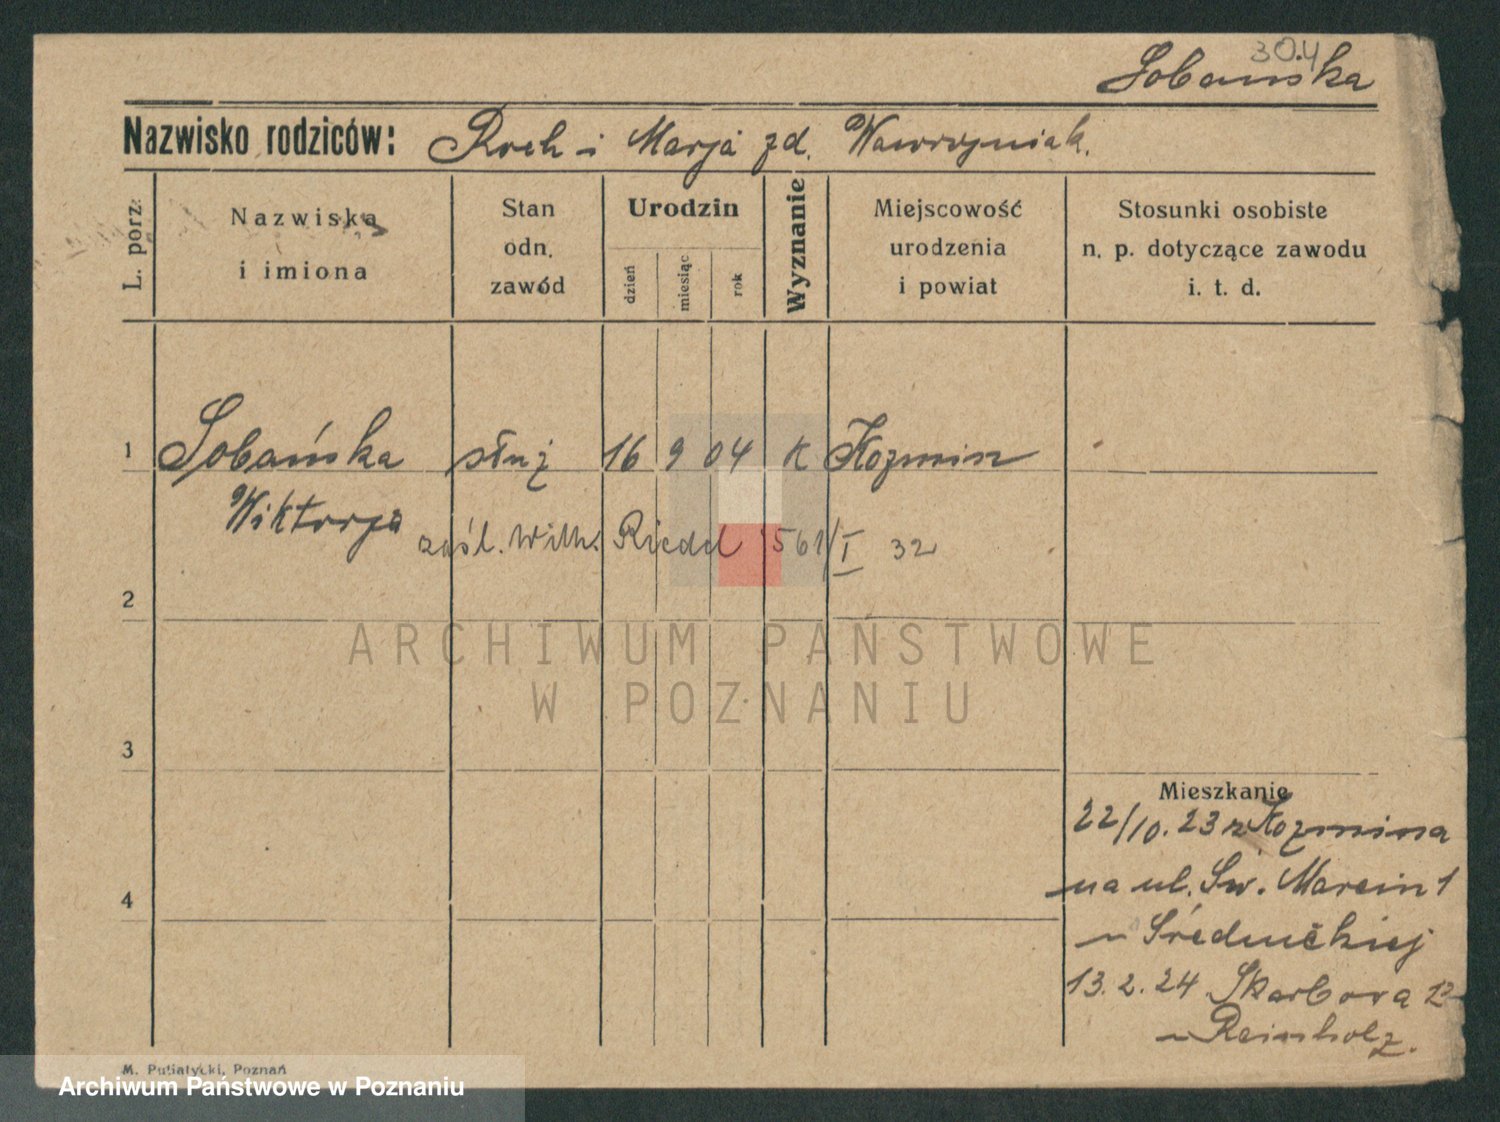 30.4
Sobańska
Nazwisko rodziców: Roch i Marja zd. Wawrzyniak.
L. porz.
Nazwiska
i imiona
Stan
odn.
zawód
Urodzin
dzień
miesiąc
rok
Wyznanie
Miejscowość
urodzenia
i powiat
Stosunki osobiste
n. p. dotyczące zawodu
i. t. d.
1 Sobańska służ 16 9 04 K Kozmin
Wiktorja
zaśl. Wilh. Riedel 561/I 32
2
ARCHIWUM PAŃSTWOWE
W POZNANIU
3
Mieszkanie
22/10. 23 z Kozmina
4
na ul. Św. Marcin 1
u
13. 2. 24 Skarbowa
u Reinholz.
M. Putiatycki, Poznań
Archiwum Państwowe w Poznaniu